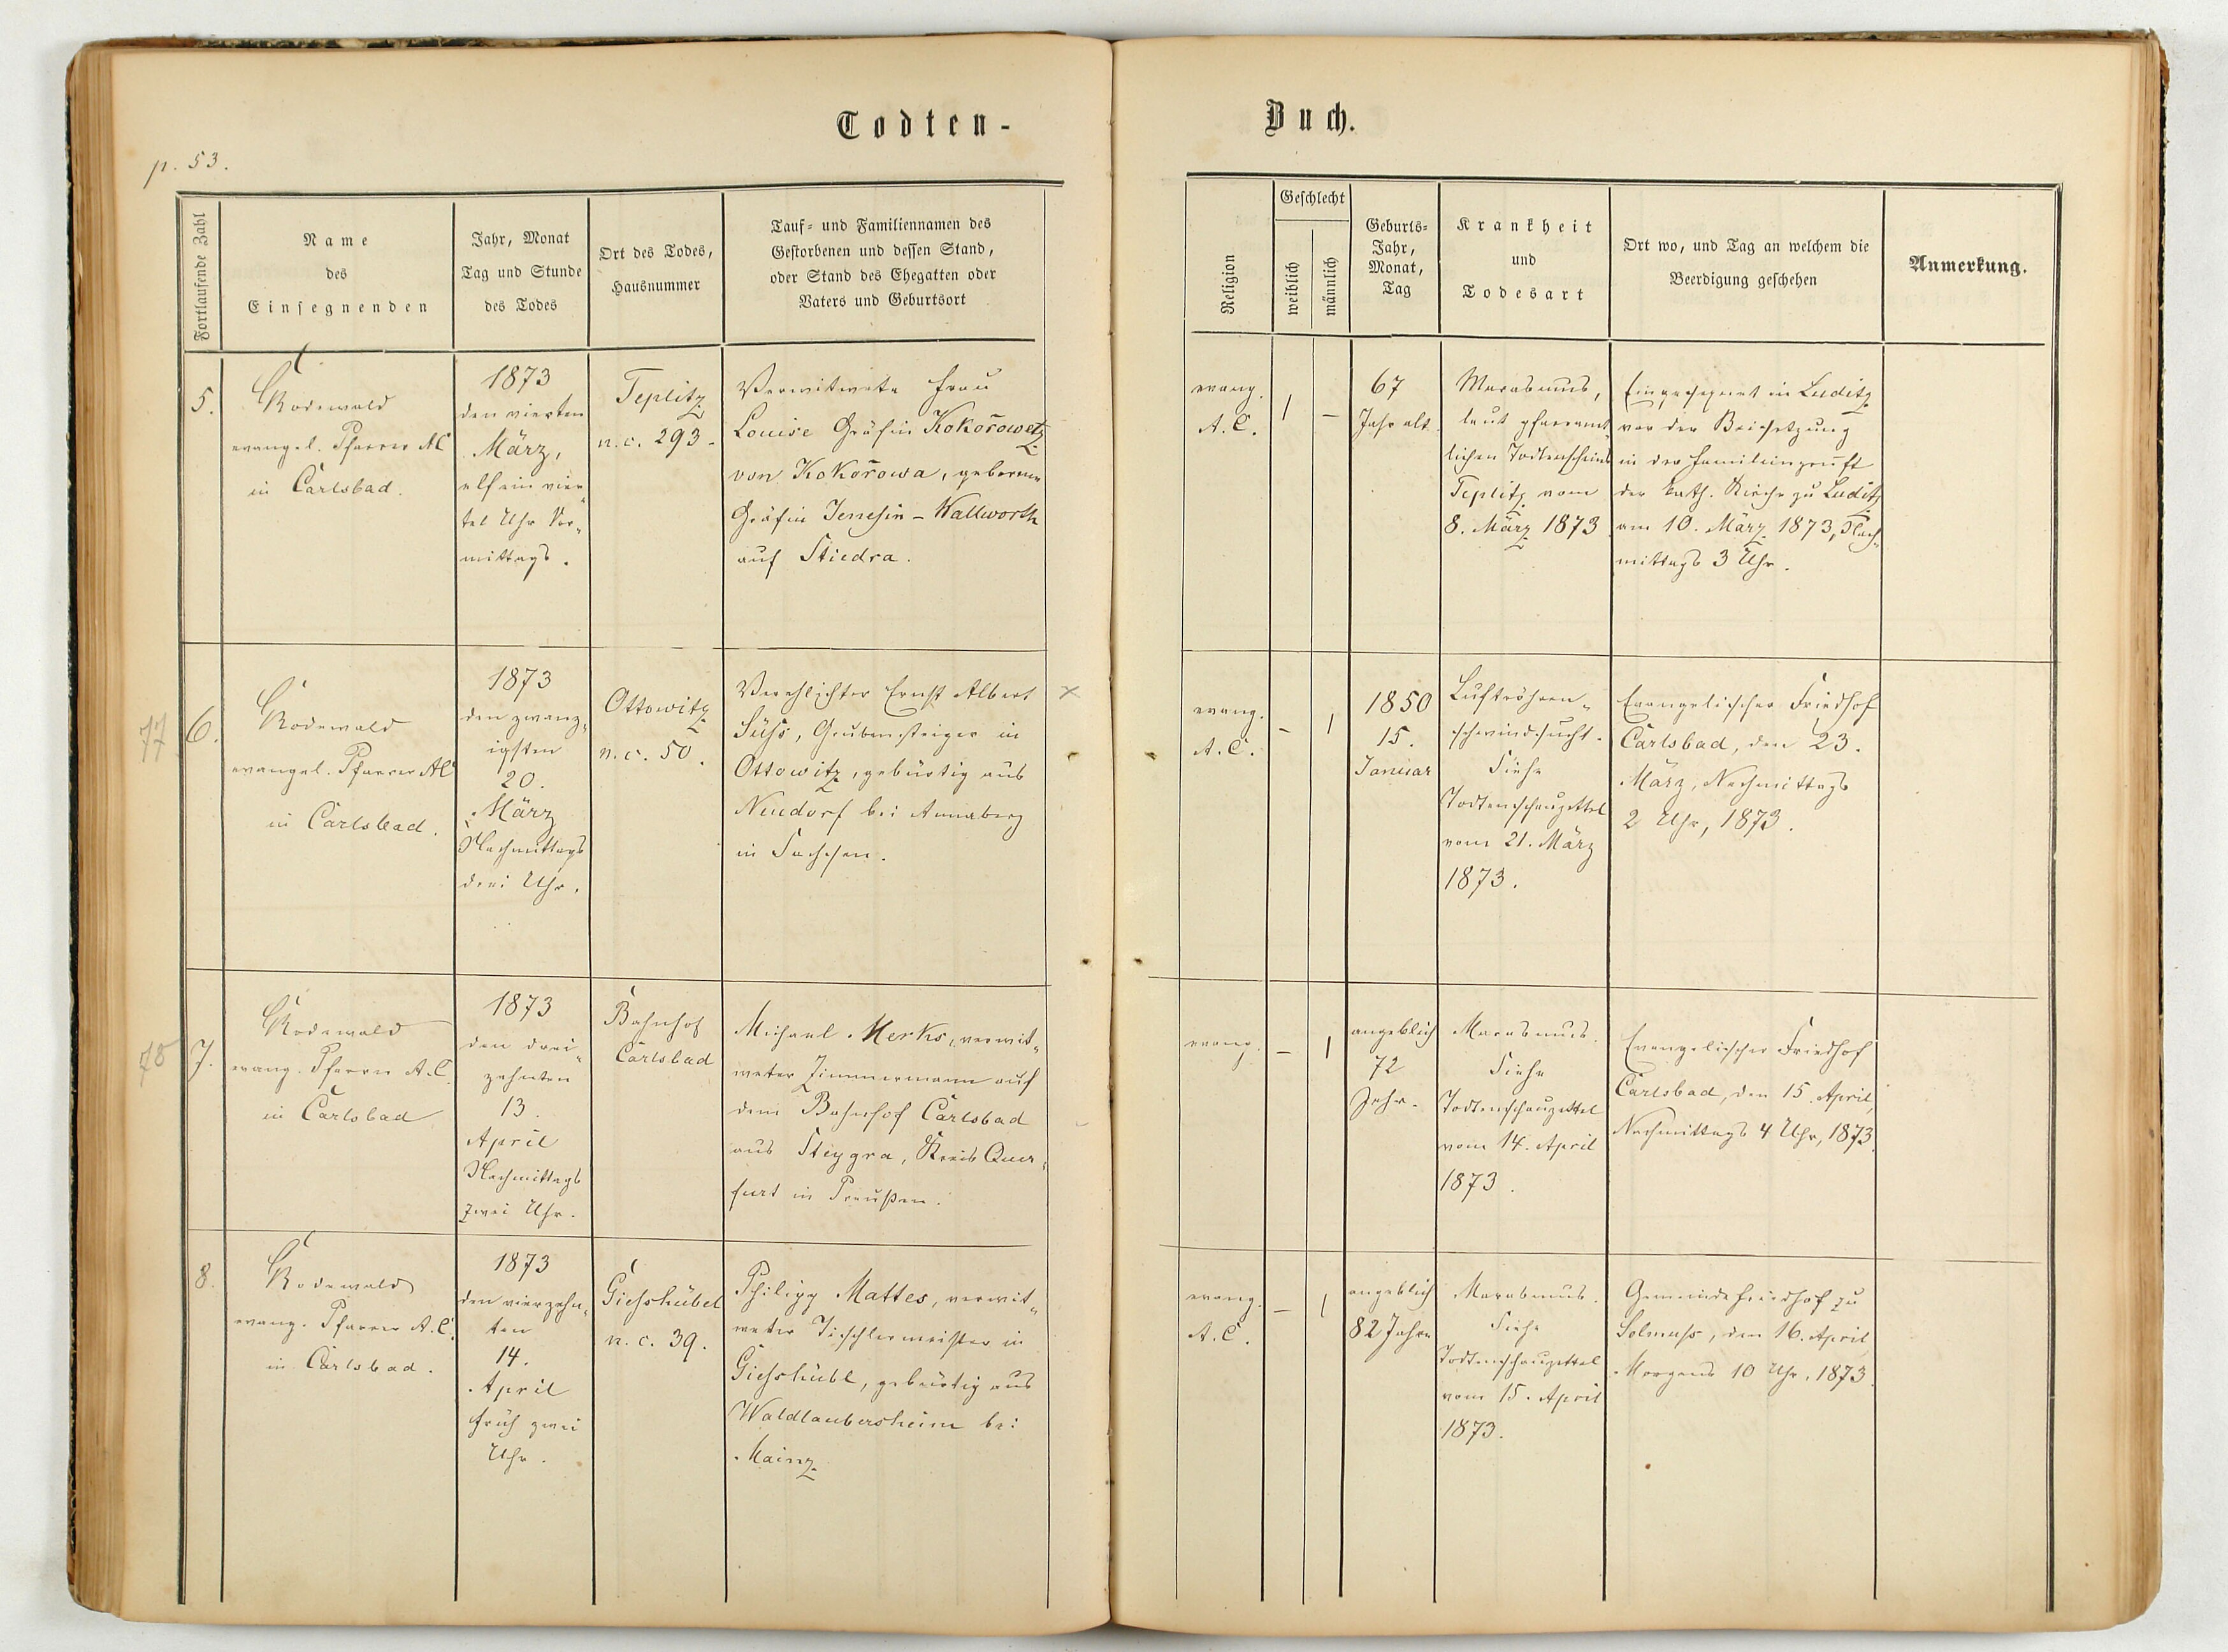 Todten-
Buch.
p. 53.
Fortlaufende Zahl
Name
des
Einsegnenden
Jahr, Monat
Tag und Stunde
des Todes
Ort des Todes,
Hausnummer
Tauf- und Familiennamen des
Gestorbenen und dessen Stand,
oder Stand des Ehegatten oder
Vaters und Geburtsort
Religion
Geschlecht
weiblich
männlich
Geburts-
Jahr,
Monat,
Tag
Krankheit
und
Todesart
Ort wo, und Tag an welchem die
Beerdigung geschehen
Anmerkung.
5.
Rodewald
evangel. Pfarrer AC
in Carlsbad.
1873
den vierten
März,
elf ein vier-
tel Uhr Vor-
mittags.
Teplitz
n.c. 293.
Verwitwete Frau
Louise Gräfin Kokořowetz
von Kokořowa, geborene
Gräfin Jenesin-Wallworth
auf Stiedra.
evang.
A.C.
1
–
67
Jahr alt.
Marasmus,
laut pfarramt-
lichen Todtenscheins
Teplitz vom
8. März 1873.
Eingesegnet in Luditz
vor der Beisetzung
in der Familiengruft
der kath. Kirche zu Luditz
am 10. März 1873, Nach-
mittags 3 Uhr.
77
6.
Rodewald
evangel. Pfarrer AC
in Carlsbad.
1873
den zwanz-
igsten
20.
März
Nachmittags
drei Uhr.
Ottowitz
n.c. 50.
Verehlichter Ernst Albert
Süss, Grubensteiger in
Ottowitz, gebürtig aus
Neudorf bei Annaberg
in Sachsen.
x
evang.
A.C.
–
1
1850
15.
Januar
Luftröhren-
schwindsucht.
Siehe
Todtenschauzettel
vom 21. März
1873.
Evangelischer Friedhof
Carlsbad, den 23.
März, Nachmittags
2 Uhr, 1873.
78
7.
Rodewald
evang. Pfarrer A.C.
in Carlsbad
1873
den drei-
zehnten
13.
April
Nachmittags
zwei Uhr.
Bahnhof
Carlsbad
Michael Merks, verwit-
weter Zimmermann auf
dem Bahnhof Carlsbad
aus Steygra, Kreis Quer-
furt in Preußen.
evang.
–
1
angeblich
72
Jahr.
Marasmus.
Siehe
Todtenschauzettel
vom 14. April
1873.
Evangelischer Friedhof
Carlsbad, den 15. April,
Nachmittags 4 Uhr, 1873.
8.
Rodewald
evang. Pfarrer A.C.
in Carlsbad.
1873
den vierzehn-
ten
14.
April
früh zwei
Uhr.
Giesshübel
n.c. 39.
Philipp Mattes, verwit-
weter Tischlermeister in
Giesshübl, gebürtig aus
Waldlaubersheim bei
Mainz
evang.
A.C.
–
1
angeblich
82 Jahre
Marasmus.
Siehe
Todtenschauzettel
vom 15. April
1873.
Gemeindefriedhof zu
Solmuss, den 16. April,
Morgens 10 Uhr, 1873.